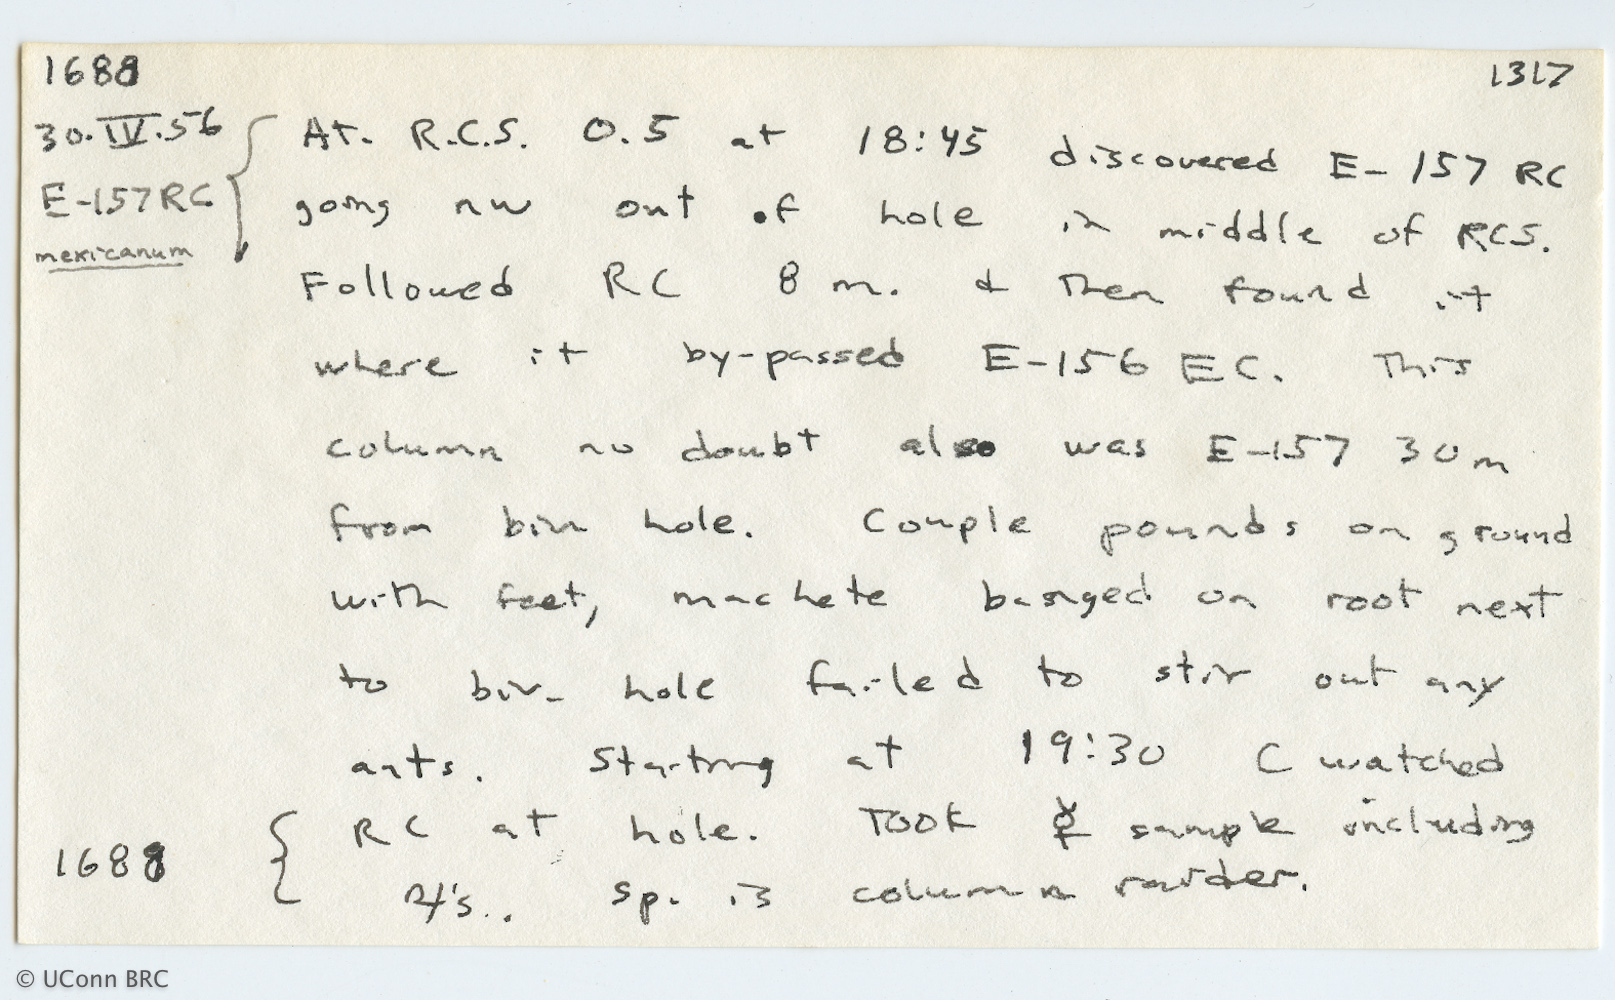 1688 1317
30.IV.56 At. R.C.S. 0.5 at 18:45 discovered E-157 RC
E-157RC going nw out of hole in middle of RCS.
mexicanum
Followed RC 8 m. & then found it
where it by-passed E-156 EC. This
column no doubt also was E-157 30m
from biv hole. Couple pounds on ground
with feet, machete banged on root next
to biv. hole failed to stir out any
ants. Starting at 19:30 C watched
RC at hole. Took ☿ sample including
1688 ♃'s. sp. is column raider.
© UConn BRC